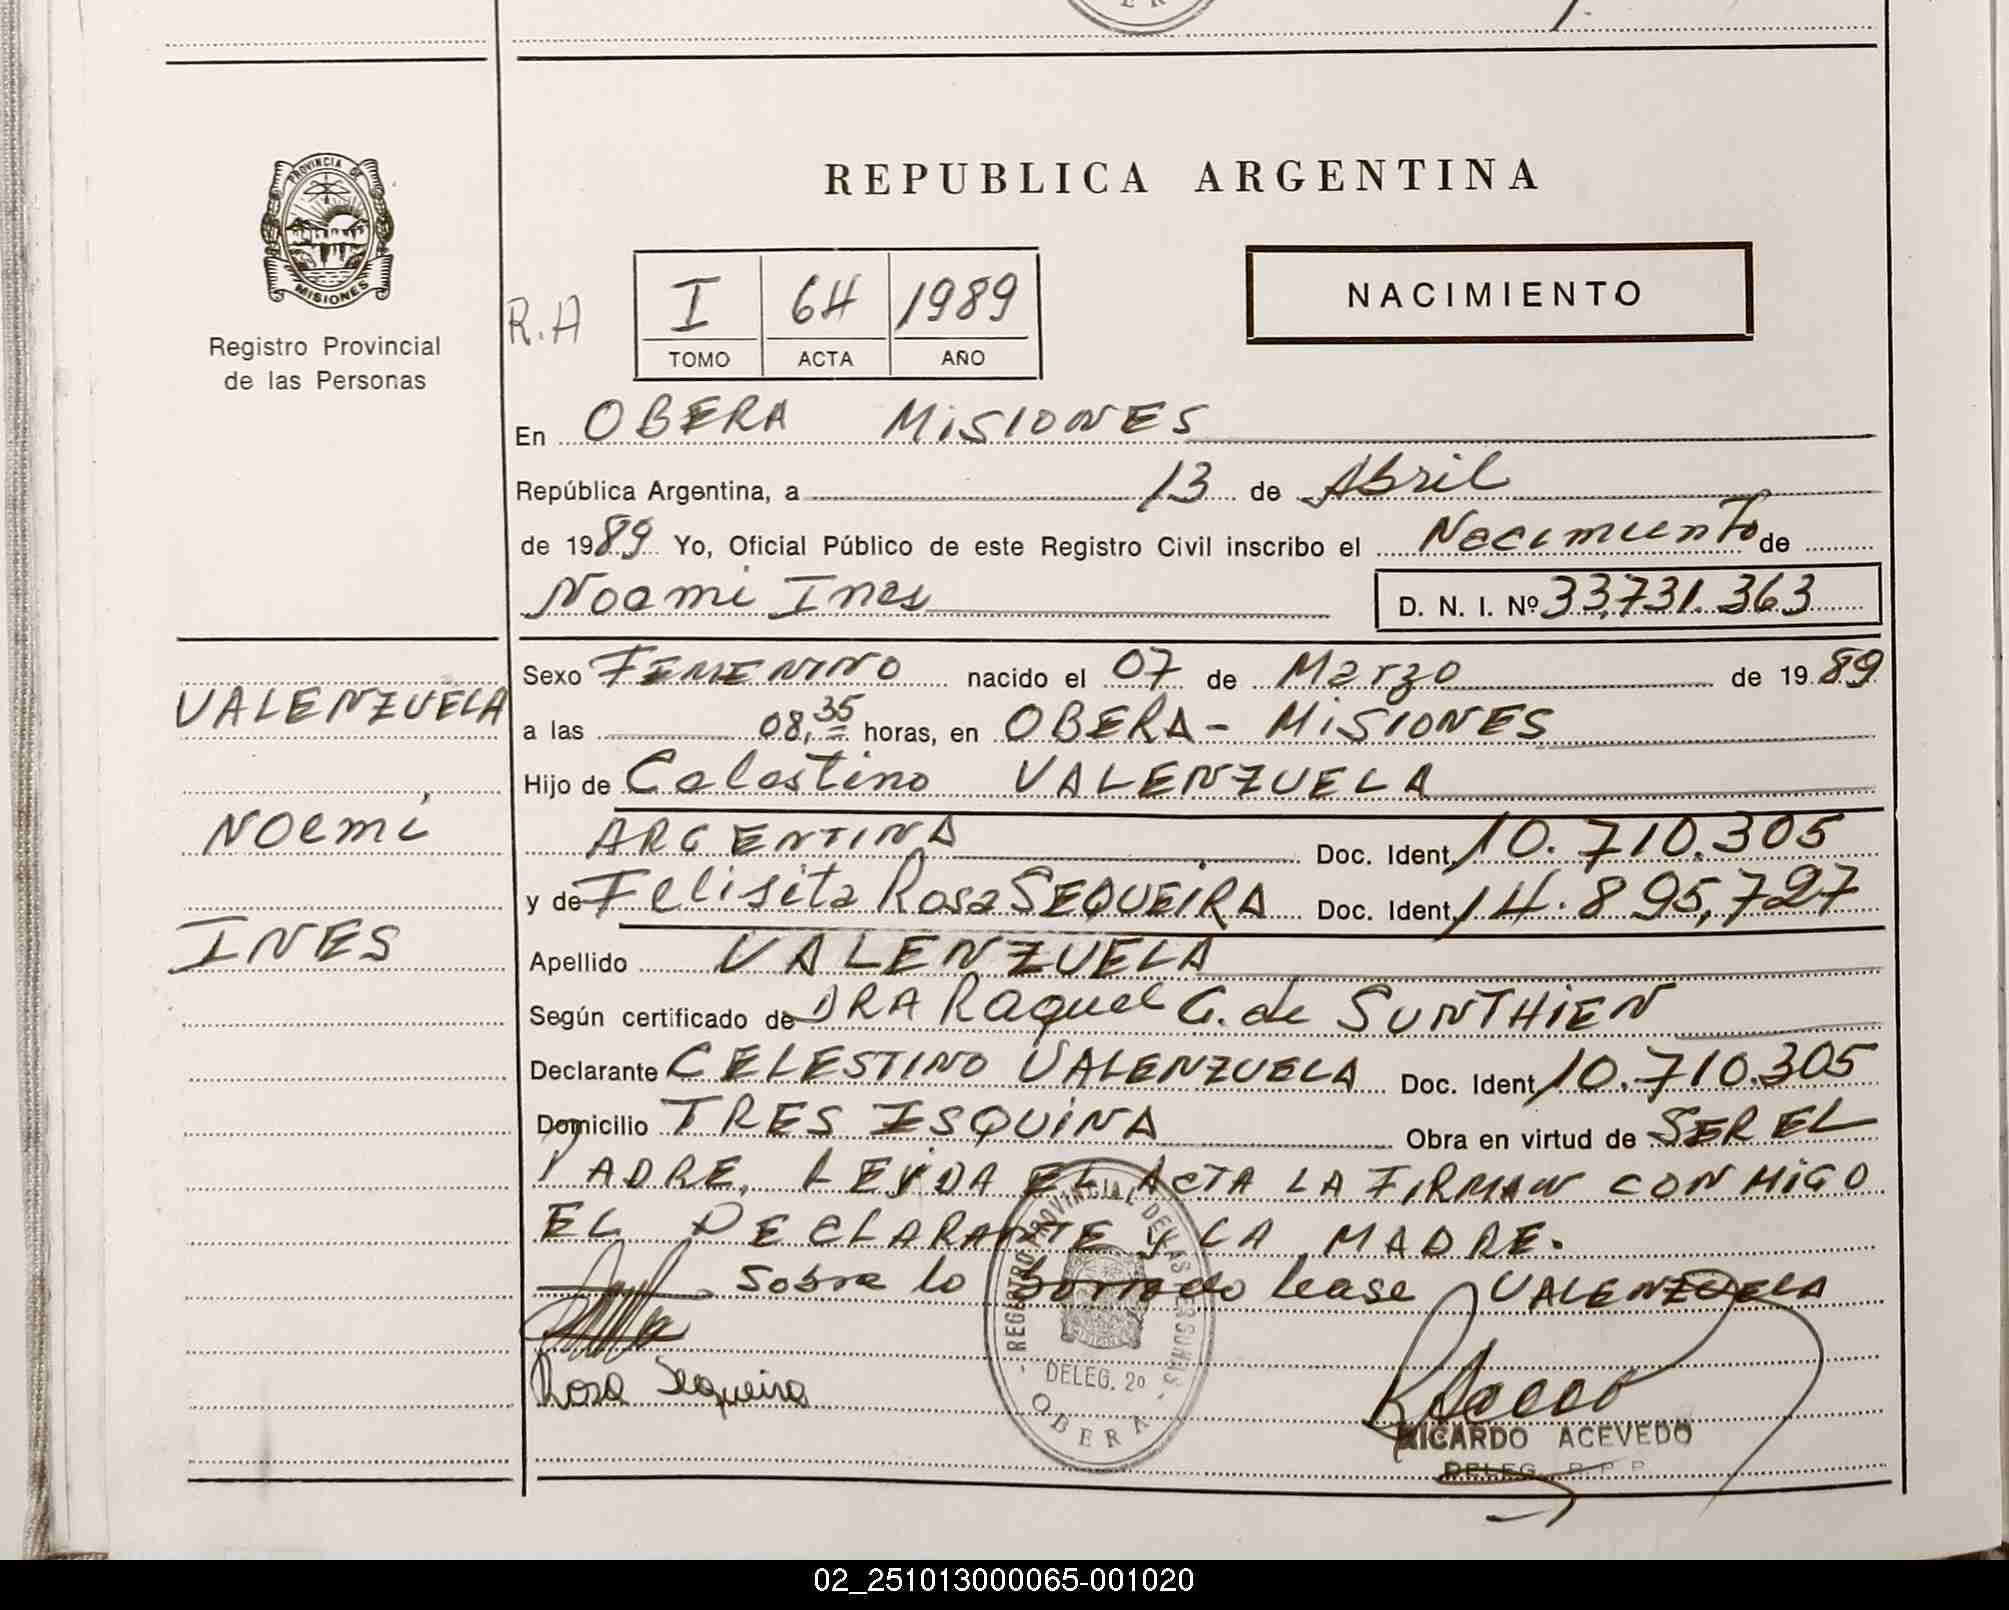 E R
PROVINCIA DE
MISIONES
Registro Provincial
de las Personas
REPUBLICA ARGENTINA
NACIMIENTO
R.A
I 64 1989
TOMO ACTA AÑO
En OBERA MISIONES
República Argentina, a 13 de Abril
de 1989 Yo, Oficial Público de este Registro Civil inscribo el Nacimiento de
Noemi Ines D. N. I. Nº 33,731.363
VALENZUELA
NOEMí
INES
Sexo FEMENINO nacido el 07 de Marzo de 1989
a las 08,35 horas, en OBERA - MISIONES
Hijo de Celestino VALENZUELA
ARGENTINA Doc. Ident. 10.710.305
y de Felisita Rosa SEQUEIRA Doc. Ident. 14.895,727
Apellido VALENZUELA
Según certificado de DRA Raquel G. de SUNTHIEN
Declarante CELESTINO VALENZUELA Doc. Ident. 10.710.305
Domicilio TRES ESQUINA Obra en virtud de SER EL
PADRE. LEYDA EL ACTA LA FIRMAN CONMIGO
EL DECLARANTE Y LA MADRE.
Sobre lo borrado lease VALENZUELA
Rosa Sequeira
REGISTRO PROVINCIAL DE LAS PERSONAS
DELEG. 2º
OBERA
RICARDO ACEVEDO
DELEG. R.P.P
02_251013000065-001020